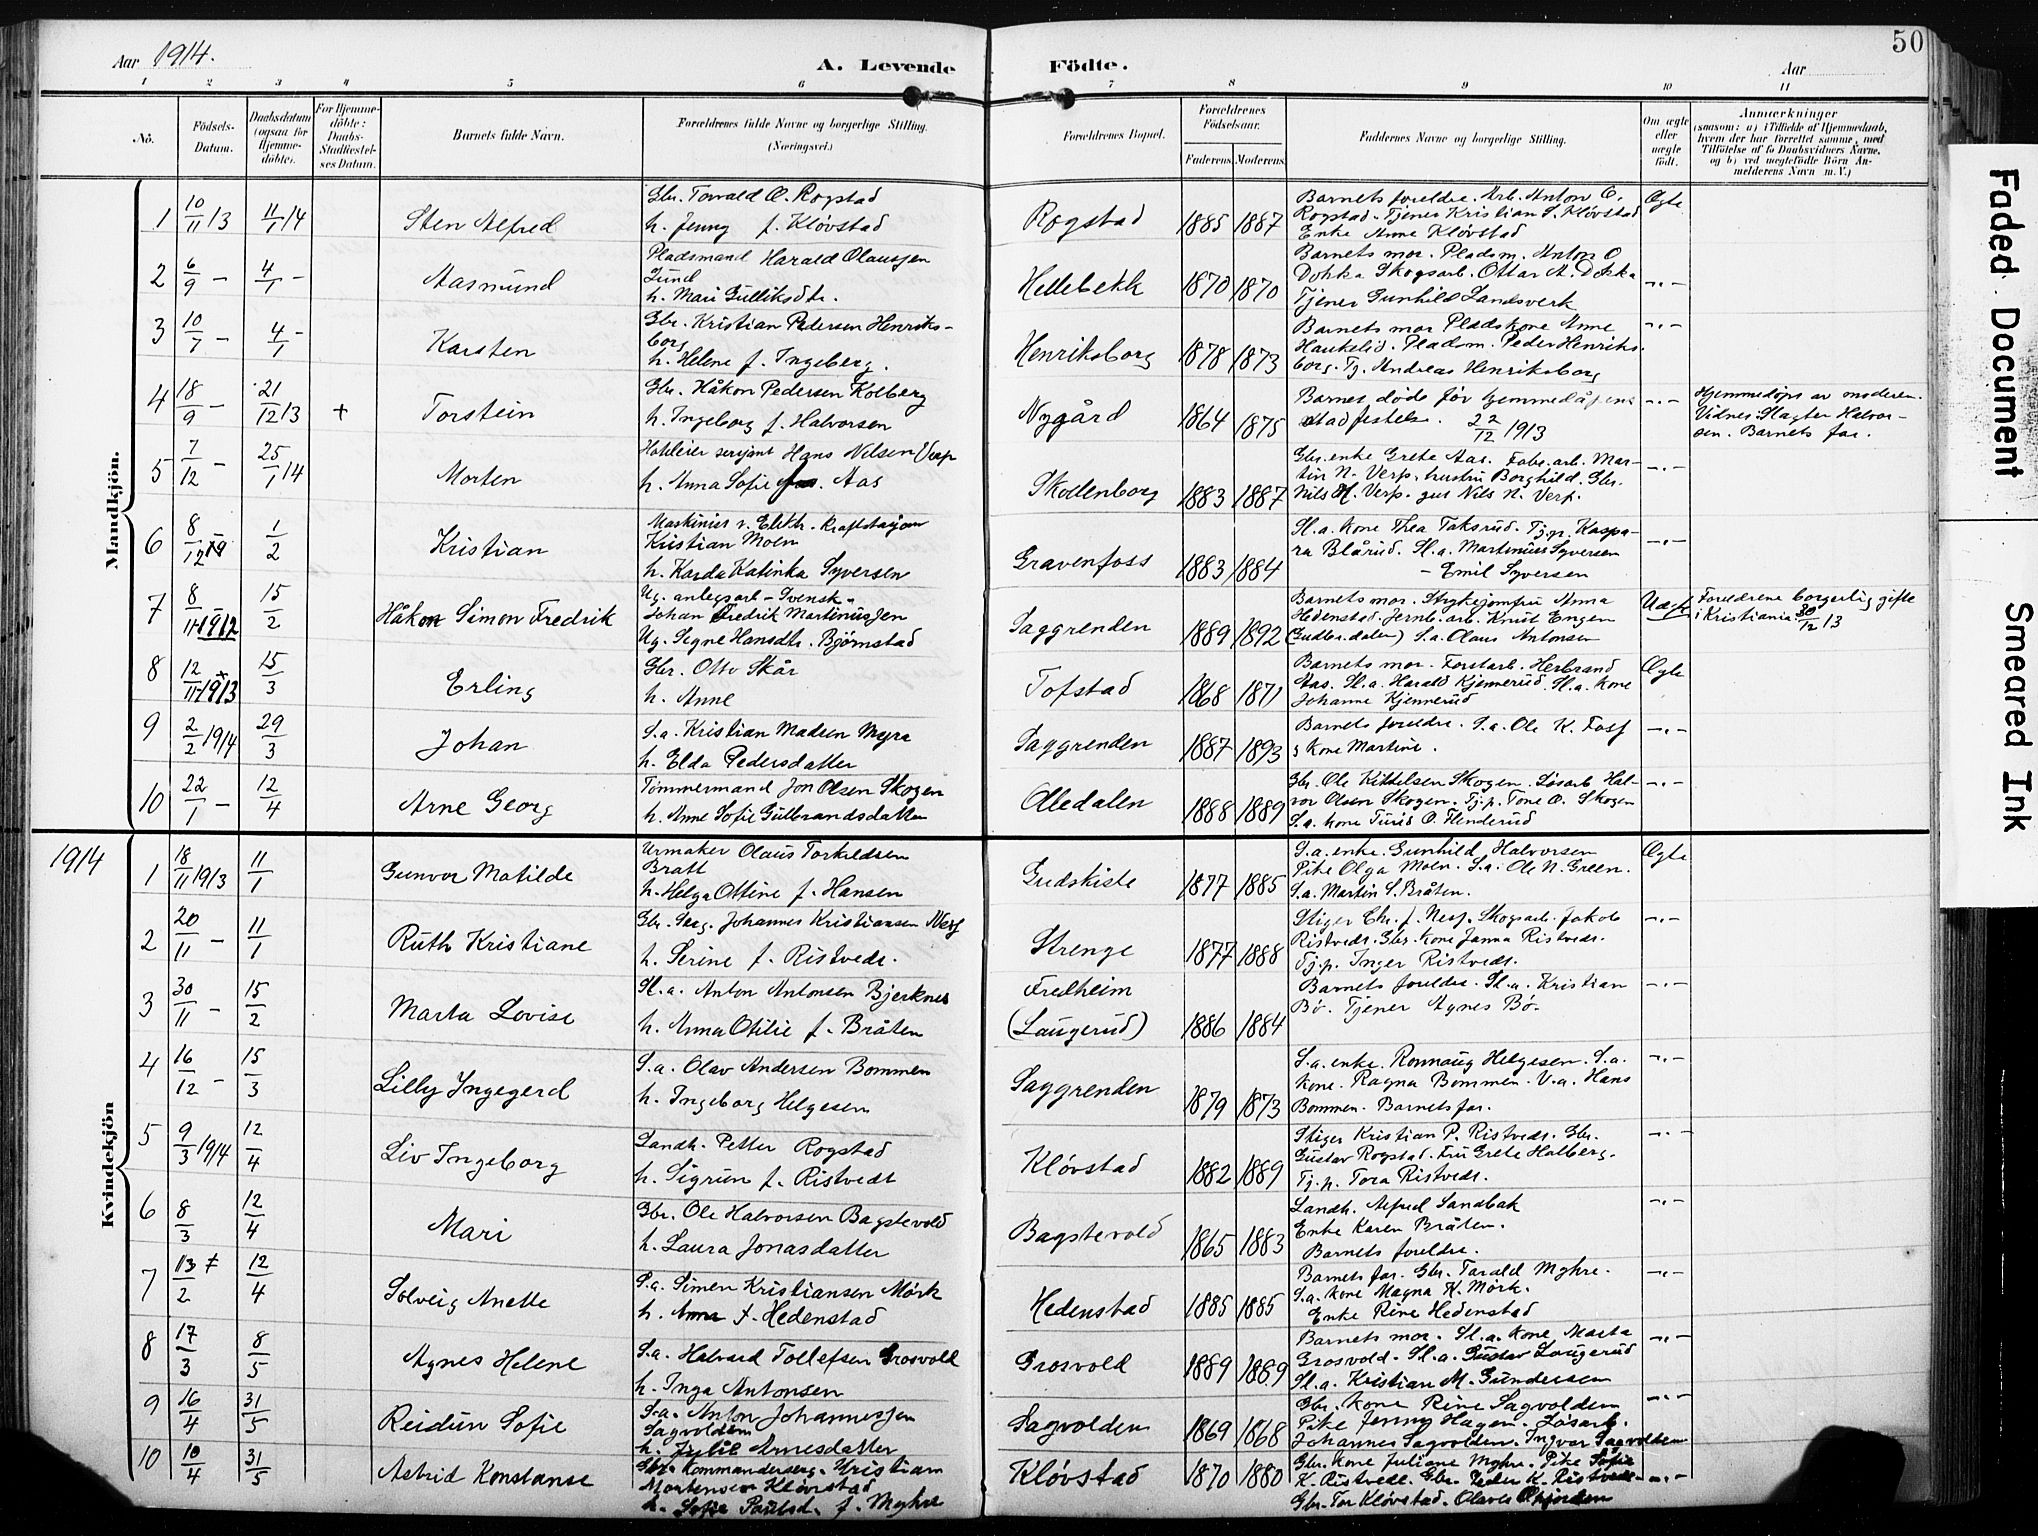 Aar 1914.
A. Levende Födte.
Aar
50
1 2 3 4 5 6 7 8 9 10 11
No.
Födsels-Datum.
Daabsdatum (ogsaa for Hjemmedöbte).
For Hjemmedöbte: Daabs-Stadfæstelses Datum.
Barnets fulde Navn.
Forældrenes fulde Navne og borgerlige Stilling. (Næringsvei.)
Forældrenes Bopæl.
Forældrenes Födselsaar.
Faderens. Moderens.
Faddernes Navne og borgerlige Stilling.
Om ægte eller uægte födt.
Anmærkninger
(saasom: a) i Tilfælde af Hjemmedaab, hvem der har forrettet samme, med Tilföielse af to Daabsvidners Navne, og b) ved uegtefödte Börn Anmelderens Navn m. V.)
Mandkjön.
1 10/11 13 11/1 14 Sten Alfred
Gbr. Torvald O. Rogstad
h. Jenny f. Kløvstad
Rogstad 1885 1887
Barnets foreldre. Arb. Anton O.
Rogstad. Tjener Kristian S. Kløvstad
Enke Anne Kløvstad
Ægte
2 6/9 - 4/1 - Aasmund
Pladsmand Harald Olaussen
Lund
h. Mari Gulliksdtr.
Hellebekk 1870 1870
Barnets mor. Pladsm. Anton O
Dokka Skogsarb. Ottar A. Dokka
Tjener Gunhild Landsverk
-"-
3 10/7 - 4/1 - Karsten
Gbr. Kristian Pedersen Henriks-
borg
h. Helene f. Ingeberg.
Henriksborg 1878 1873
Barnets mor Pladskone Anne
Haukelid. Pladsm. Peder Henriks
borg. Tj. Andreas Henriksborg
-"-
4 18/9 - 21/12 13 + Torstein
Gbr. Håkon Pedersen Kolberg
h. Ingeborg f. Halvorsen
Nygård 1864 1875
Barnet døde før hjemmedåpens
stadfestelse. 22/12 1913
-"-
Hjemmedøpt av moderen.
Vidner: Slagter Halvor-
sen. Barnets far.
5 7/12 - 25/1 14 Morten
sersjant Hans Nilsen Verp
h. Anna Sofie Aas
Skollenborg 1883 1887
Gbr. enke Grete Aas. Fabr. arb. Mar-
tin N. Verp. hustru Borghild. Gbr.
Nils H. Verp. gut Nils N. Verp.
-"-
6 8/12 1/2 Kristian
Maskinist v. Elektr. Kraftstasjon
Kristian Moen
h. Karda Katinka Syversen
Gravenfoss 1883 1884
Sl.a. kone Thea Taksrud. Tj.p. Kaspa-
ra Blårud. Sl.a. Martinius Syversen
- Emil Syversen
-"-
7 8/11 1912 15/2 Håkon Simon Fredrik
Ug. anlegsarb - Svensk -
Johan Fredrik Martinussen
Ug. Signe Hansdtr. Bjørnstad
Saggrenden 1889 1892
Barnets mor. Strykejomfru Anna
Hedenstad. Jernb. arb. Knut Engen
(Gudbr. dalen) S.a. Olaus Antonsen
Uægte
Foreldrene borgerlig gifte
i Kristiania 30/12 13
8 12/11 1913 15/3 Erling
Gbr. Otto Skår
h. Anne
Tofstad 1868 1871
Barnets mor. Forstarb. Herbrand
Aas. Sl.a. Harald Kjennerud. Sl.a. kone
Johanne Kjennerud
Ægte
9 2/2 1914 29/3 Johan
S.a. Kristian Madsen Myra
h. Elda Pedersdatter
Saggrenden 1887 1893
Barnets foreldre. S.a. Ole K. Foss
& kone Martine.
-"-
10 22/1 - 12/4 Arne Georg
Tømmermand Jon Olsen Skogen
h. Anne Sofie Gulbrandsdatter
Olledalen 1888 1889
Gbr. Ole Kittelsen Skogen. Løsarb. Hal-
vor Olsen Skogen. Tj.p. Tone O. Skogen
S.a. kone Turid O. Flinderud
-"-
1914
Kvindekjön
1 18/11 1913 11/1 Gunvor Matilde
Urmaker Olaus Torkildsen
Bratt
h. Helga Ottine f. Hansen
Gudskiste 1877 1885
S.a. enke. Gunhild Halvorsen
Pike Olga Moen. S.a. Ole N. Green.
S.a. Martin S. Bråten.
Ægte
2 20/11 - 11/1 Ruth Kristiane
Gbr. Serg. Johannes Kristiansen
h. Serine f. Ristvedt.
Strenge 1877 1888
Stiger Chr. J. Skogsarb. Jakob
Ristvedt. Gbr. kone Janna Ristvedt.
Tj.p. Inger Ristvedt.
-"-
3 30/11 - 15/2 Marta Lovise
Sl.a. Anton Antonsen Bjerknes
h. Anna Otilie f. Bråten
Fredheim
(Laugerud) 1886 1884
Barnets foreldre. Sl.a. Kristian
Bø. Tjener Agnes Bø.
-"-
4 16/12 - 15/3 Lilly Ingegerd
S.a. Olav Andersen Bommen
h. Ingeborg Helgesen
Saggrenden 1879 1873
S.a. enke. Ronnaug Helgesen. S.a.
kone. Ragna Bommen. V.a. Hans
Bommen. Barnets far.
-"-
5 9/3 1914 12/4 Liv Ingeborg
Landh. Petter Rogstad
h. Sigrun f. Ristvedt
Kløvstad 1882 1889
Stiger Kristian P. Ristvedt. Gbr.
Gustav Rogstad. Fru Grete Halberg.
Tj.p. Tora Ristvedt.
-"-
6 8/3 12/4 Mari
Gbr. Ole Halvorsen Bagstevold
h. Laura Jonasdatter
Bagstevold 1865 1883
Landh. Alfred Sandbak
Enke Karen Bråten.
Barnets foreldre.
-"-
7 13/2 12/4 Solveig Anette
S.a. Simen Kristiansen Mörk
h. Anna f. Hedenstad
Hedenstad 1885 1885
Barnets far. Gbr. Tarald Myhre.
S.a. kone Magna K. Mörk.
Enke Rine Hedenstad
-"-
8 17/3 8/5 Agnes Helene
S.a. Halvard Tollefsen Grosvold
h. Inga Antonsen
Grosvold 1889 1889
Barnets mor. Sl.a. kone Marta
Grosvold. Sl.a. Gustav Laugerud
Sl.a. Kristian M. Gundersen
-"-
9 16/4 31/5 Reidun Sofie
S.a. Anton Johannessen
Sagvolden
h. Julie Arnesdatter
Sagvolden 1869 1868
Gbr. kone Rine Sagvolden
Pike Jenny Hagen. Løsarb.
Johannes Sagvolden. Ingvar Sagvolden
-"-
10 10/4 31/5 Astrid Konstanse
Gbr. Kommandersg. Kristian
Mortensen Kløvstad
h. Sofie Paulsd. f. Myhre
Kløvstad 1870 1880
Gbr. kone Juliane Myhre. Pike Sofie
K. Ristvedt. Gbr. Peder K. Ristvedt
Gbr. Tor Kløvstad. Olaves
-"-
Faded Document
Smeared Ink